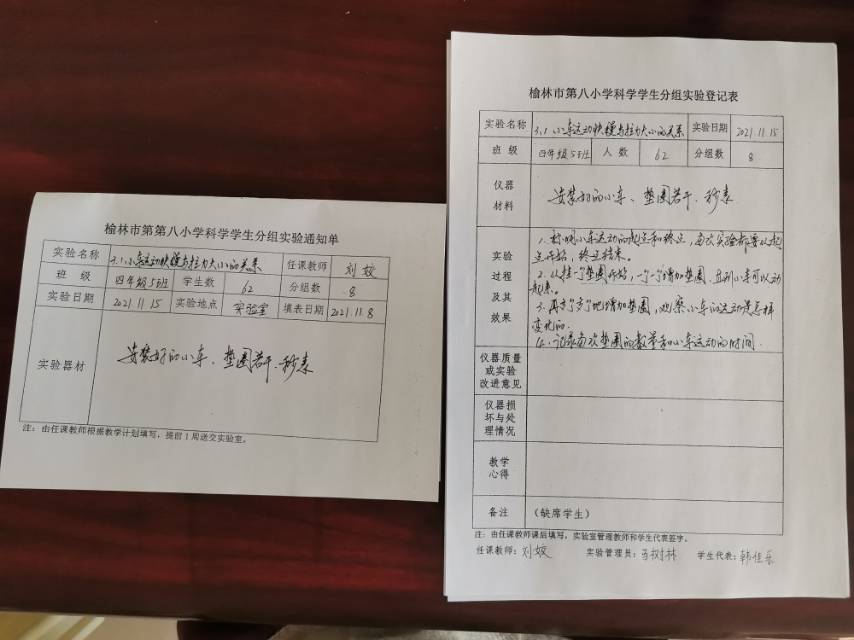 榆林市第第八小学科学学生分组实验通知单
实验名称 3.1小车运动快慢与拉力大小的关系 任课教师 刘姣
班 级 四年级5班 学生数 62 分组数 8
实验日期 2021.11.15 实验地点 实验室 填表日期 2021.11.8
实验器材 安装好的小车、垫圈若干、秒表
注：由任课教师根据教学计划填写，提前1周送交实验室。
榆林市第八小学科学学生分组实验登记表
实验名称 3.1小车运动快慢与拉力大小的关系 实验日期 2021.11.15
班 级 四年级5班 人 数 62 分组数 8
仪器
材料
安装好的小车、垫圈若干、秒表
实验
过程
及其
效果
1.标明小车运动的起点和终点，每次实验都要从起
点开始，终点结束。
2.从挂一个垫圈开始，一个一个增加垫圈，直到小车可以动
起来。
3.再多个多个地增加垫圈，观察小车的运动是怎样
变化的。
4.记录每次垫圈的数量和小车运动的时间.
仪器质量
或实验
改进意见
仪器损
坏与处
理情况
教学
心得
备注 （缺席学生）
注：由任课教师课后填写，实验室管理教师和学生代表签字。
任课教师：刘姣 实验管理员：马树林 学生代表：韩佳乐